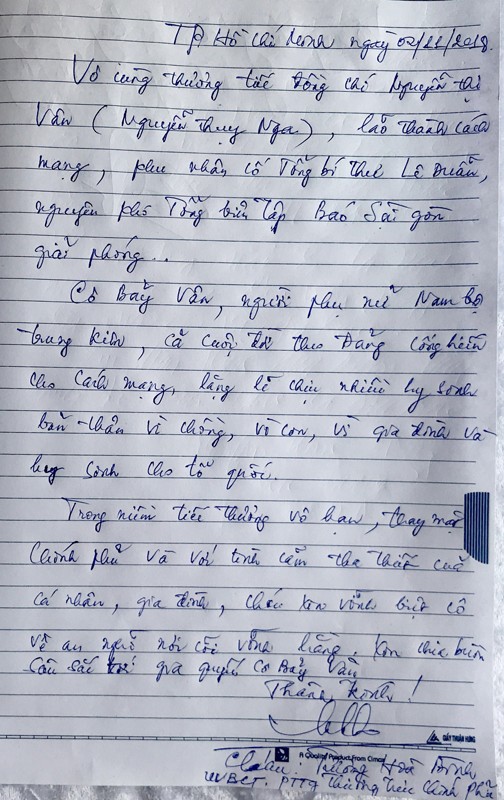 TP Hồ Chí Minh ngày 02/11/2018.
Vô cùng thương tiếc đồng chí Nguyễn thị
Vân (Nguyễn Thụy Nga), lão thành cách
mạng, phu nhân cố Tổng bí thư Lê Duẩn,
nguyên phó Tổng biên tập Báo Sài gòn
giải phóng...
Cô Bảy Vân, người phụ nữ Nam bộ
trung kiên, cả cuộc đời theo Đảng cống hiến
cho Cách mạng, lặng lẽ chịu nhiều hy sinh
bản thân vì chồng, vì con, vì gia đình và
hy sinh cho tổ quốc.
Trong niềm tiếc thương vô hạn, thay mặt
Chính phủ và với tình cảm tha thiết của
cá nhân, gia đình, cháu xin vĩnh biệt cô
về an nghỉ nơi cõi vĩnh hằng. Xin chia buồn
sâu sắc tới gia quyến Cô Bảy Vân
Thành kính!
GIẤY THUẬN HƯNG
A Quality Product from
Cháu: Trương Hòa Bình
UVBCT. PTTg Thường trực Chính Phủ